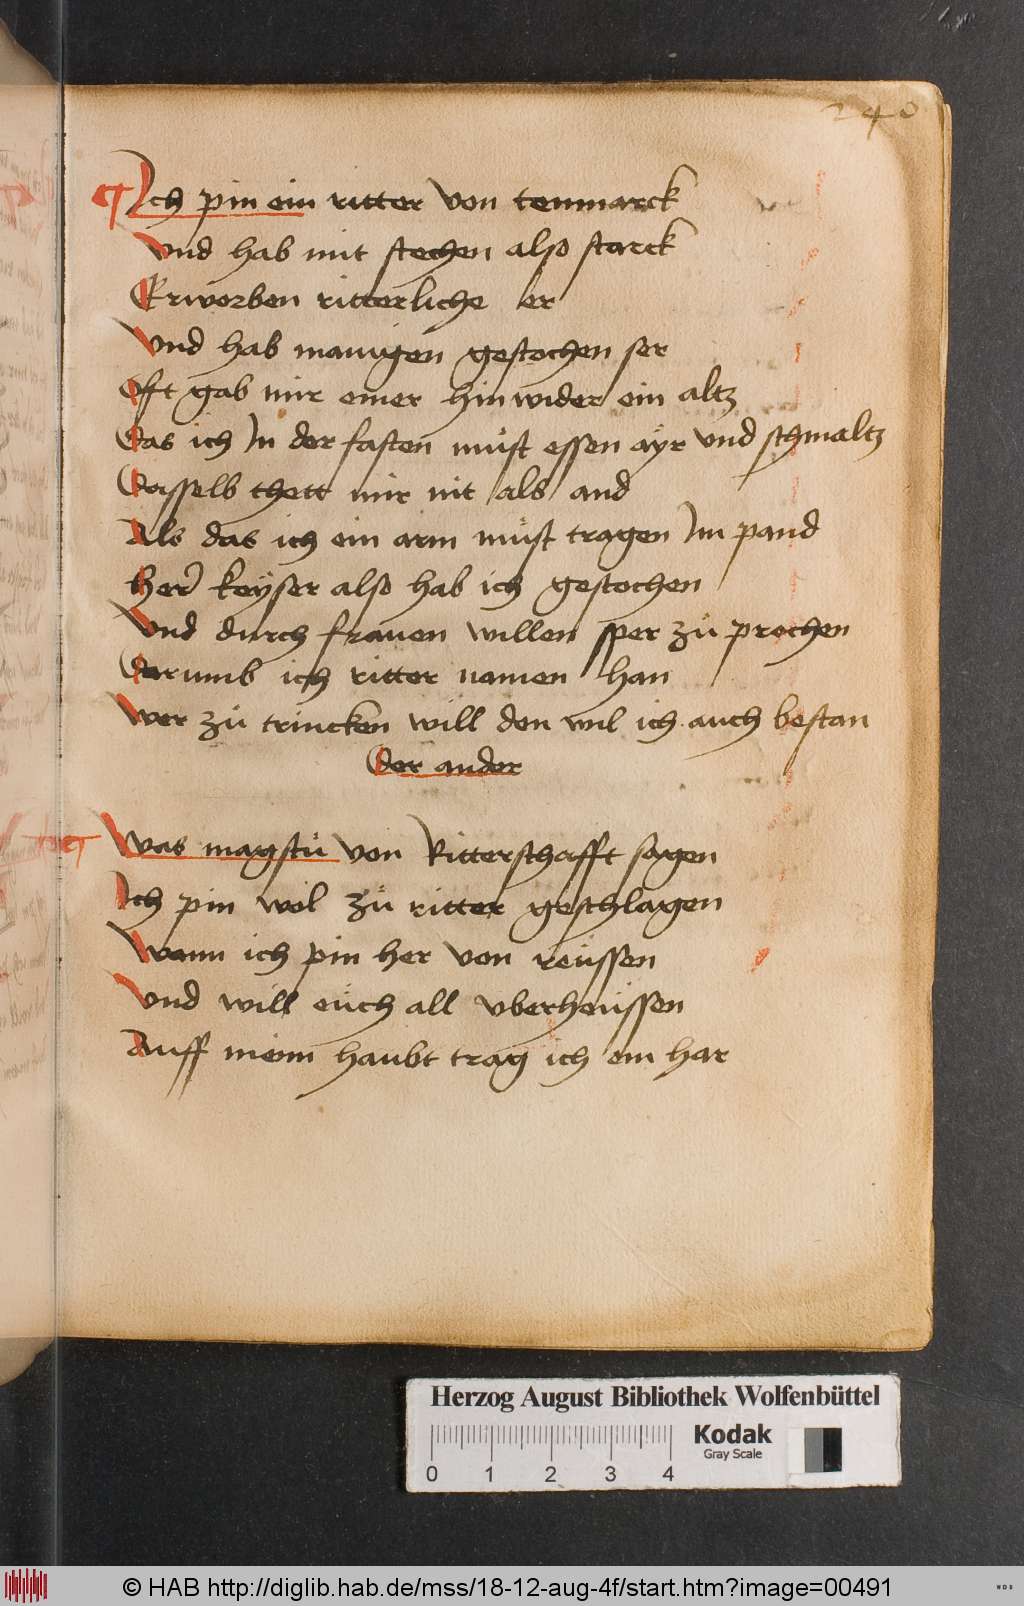 240
Ich pin ein ritter von tenmarck
Vnd hab mit stechen also starck
Erworben ritterliche er
Vnd hab manigen gestochen ser
Offt gab mir einer hin wider ein altz
Das ich In der fasten můst essen aÿr vnd schmaltz
Dasselb thett mir nit als and
Als das ich ein arm můst tragen Im pand
Her keÿser also hab ich gestochen
Vnd durch frauen willen sper zů prochen
Darumb ich ritter namen han
Wer zů trincken will den wil ich auch bestan
Der ander
Was magstu von Ritterschafft sagen
Ich pin wol zů ritter geschlagen
Wann ich pin her von reüssen
Vnd will eüch all vberheüssen
Auff meinn haubt trag ich ein har
Herzog August Bibliothek Wolfenbüttel
Kodak
Gray Scale
0 1 2 3 4
© HAB http://diglib.hab.de/mss/18-12-aug-4f/start.htm?image=00491